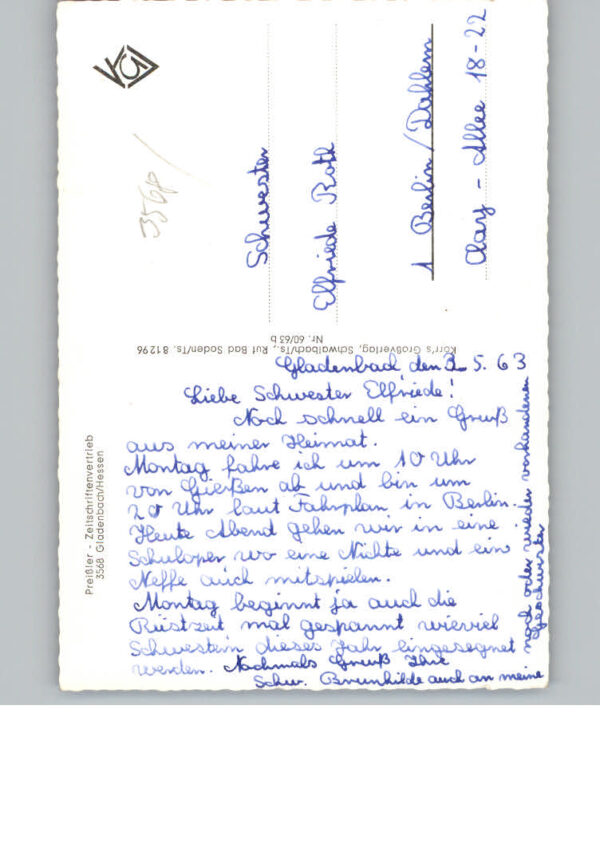 Gladenbach, den 3. 5. 63
Liebe Schwester Elfriede!
Noch schnell ein Gruß
aus meiner Heimat.
Montag fahre ich um 10 Uhr
von Gießen ab und bin um
20 Uhr laut Fahrplan in Berlin.
Heute Abend gehen wir in eine
Schuloper wo eine Nichte und ein
Neffe auch mitspielen.
Montag beginnt ja auch die
Rüstzeit mal gespannt wieviel
Schwestern dieses Jahr eingesegnet
werden. Nochmals Gruß Ihre
Schw. Brunhilde auch an meine
noch oder wieder vorhandenen
Geschwister
Schwester
Elfriede Roth
1 Berlin/Dahlem
Clay - Allee 18-22
Körr's Großverlag, Schwalbach/Ts., Ruf Bad Soden/Ts. 81296
Nr. 60/63 b
Preißler - Zeitschriftenvertrieb
3568 Gladenbach/Hessen